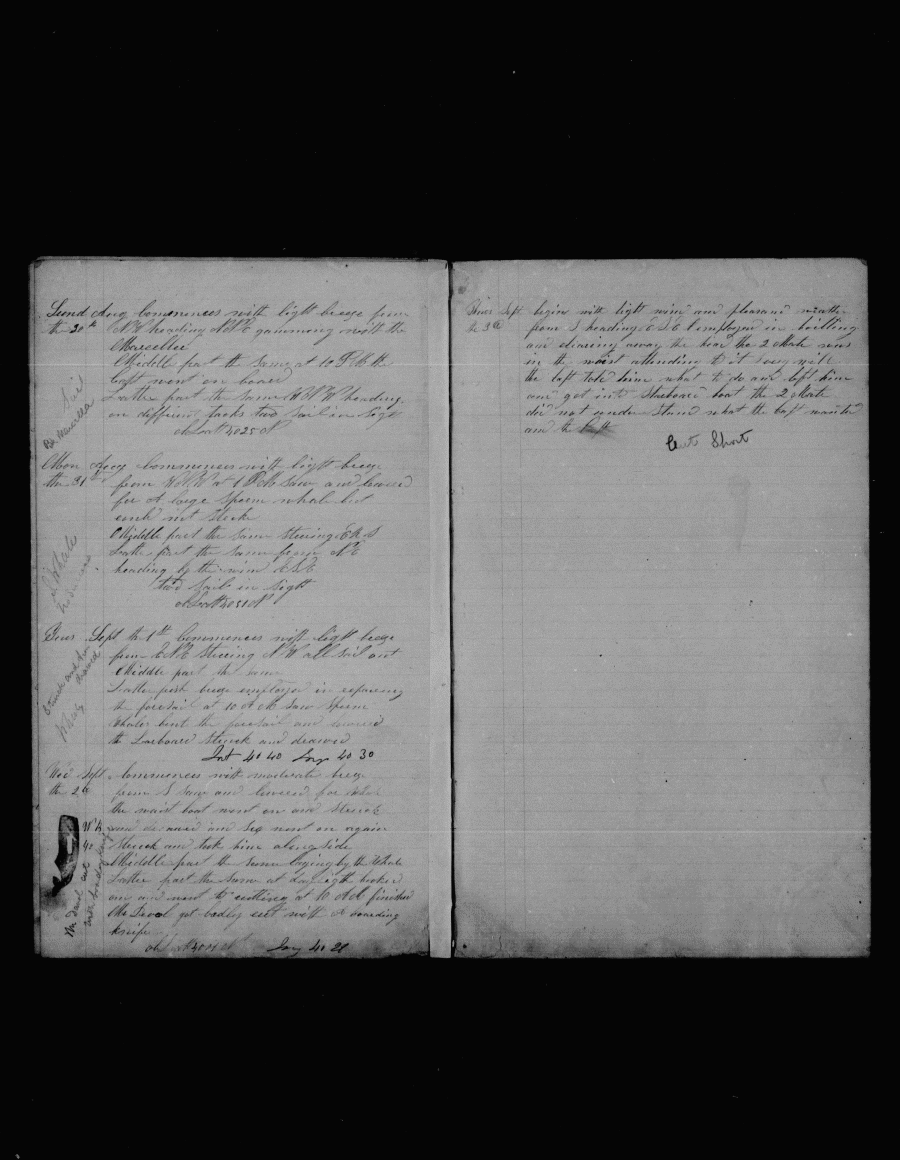 Sund Aug Commences with light breze from
the 30th N E heading N N E gamming with the
Marsellia
Middle part the same at 10 P M the
Capt went on board
Latter part the same heading
on differing tacks two Sail in Sight
Lat 40 25 N
Mon Aug Commences with light breze
the 31 from at 1 P M Saw and lowered
for A large Sperm whale but
could not Strike
Middle part the same Stering
Latter part the same from N E
heading by the wind
two Sail in Sight
Lat 40 51 N
Sept the 1st Commences with light breze
from E N E Stering N W all Sail out
Middle part the same
Latter part breze employed in repairing
the foresail at 10 A M Saw Sperm
Whales bent the foresail and lowered
the Larboard Struck and drawed
Lat 40 40 Long 40 30
Wed Sept Commences with moderate breze
the 2d from S Saw and lowered for
the waist boat went on and Struck
and drawed and went on again
Struck and took him along side
Middle part the same laying by the Whale
Latter part the same at daylight hooked
on and went to cutting at 10 A M finished
Mr got badly cut with A boarding
knife
Long 40 28
Sail
Whale
Struck and
drawed
Mr cut
with boarding knife
Sept begins with light wind and plesand wether
the 3d from S heading E S E employed in boilling
and clearing away the head the 2 Mate was
in the waist attending to it very well
the Capt told him what to do and left him
and got into Starboard boat the 2 Mate
did not under Stand what the Capt wanted
and the Capt
Cut Short